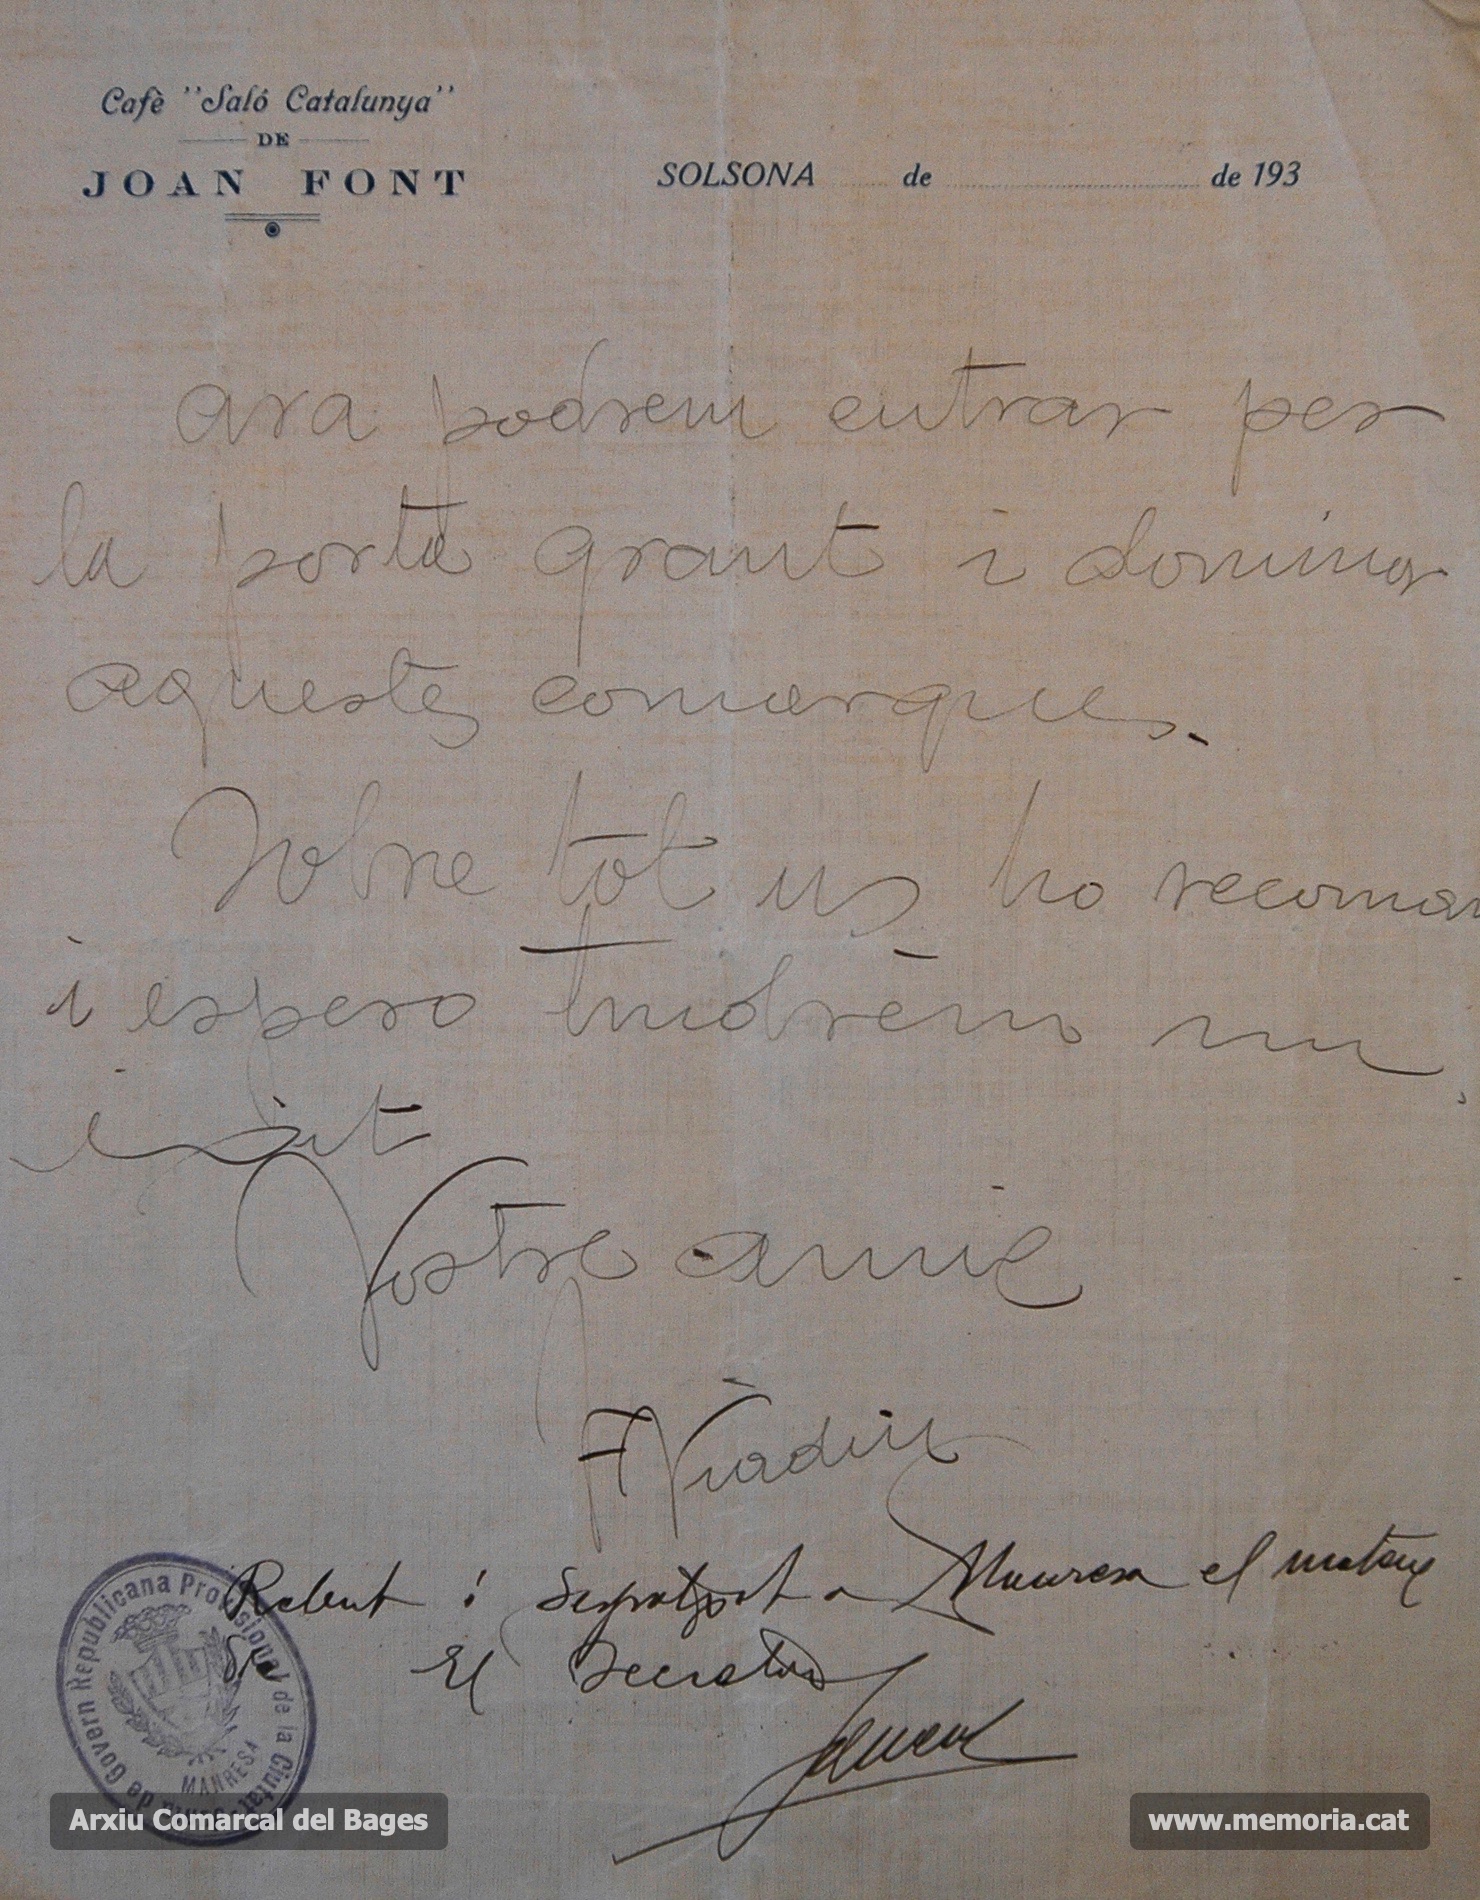 Cafè "Saló Catalunya"
DE
JOAN FONT
SOLSONA de de 193
ara podrem entrar per
la porta grant i dominar
aquestes comarques.
Sobre tot us ho recoman
i espero tindrèm un
èxit
Vostre amic
F Viadiu
Rebut i despatxat a Manresa el mateix
dia El Secretari
Junta de Govern Republicana Provisional de la Ciutat
MANRESA
Arxiu Comarcal del Bages
www.memoria.cat